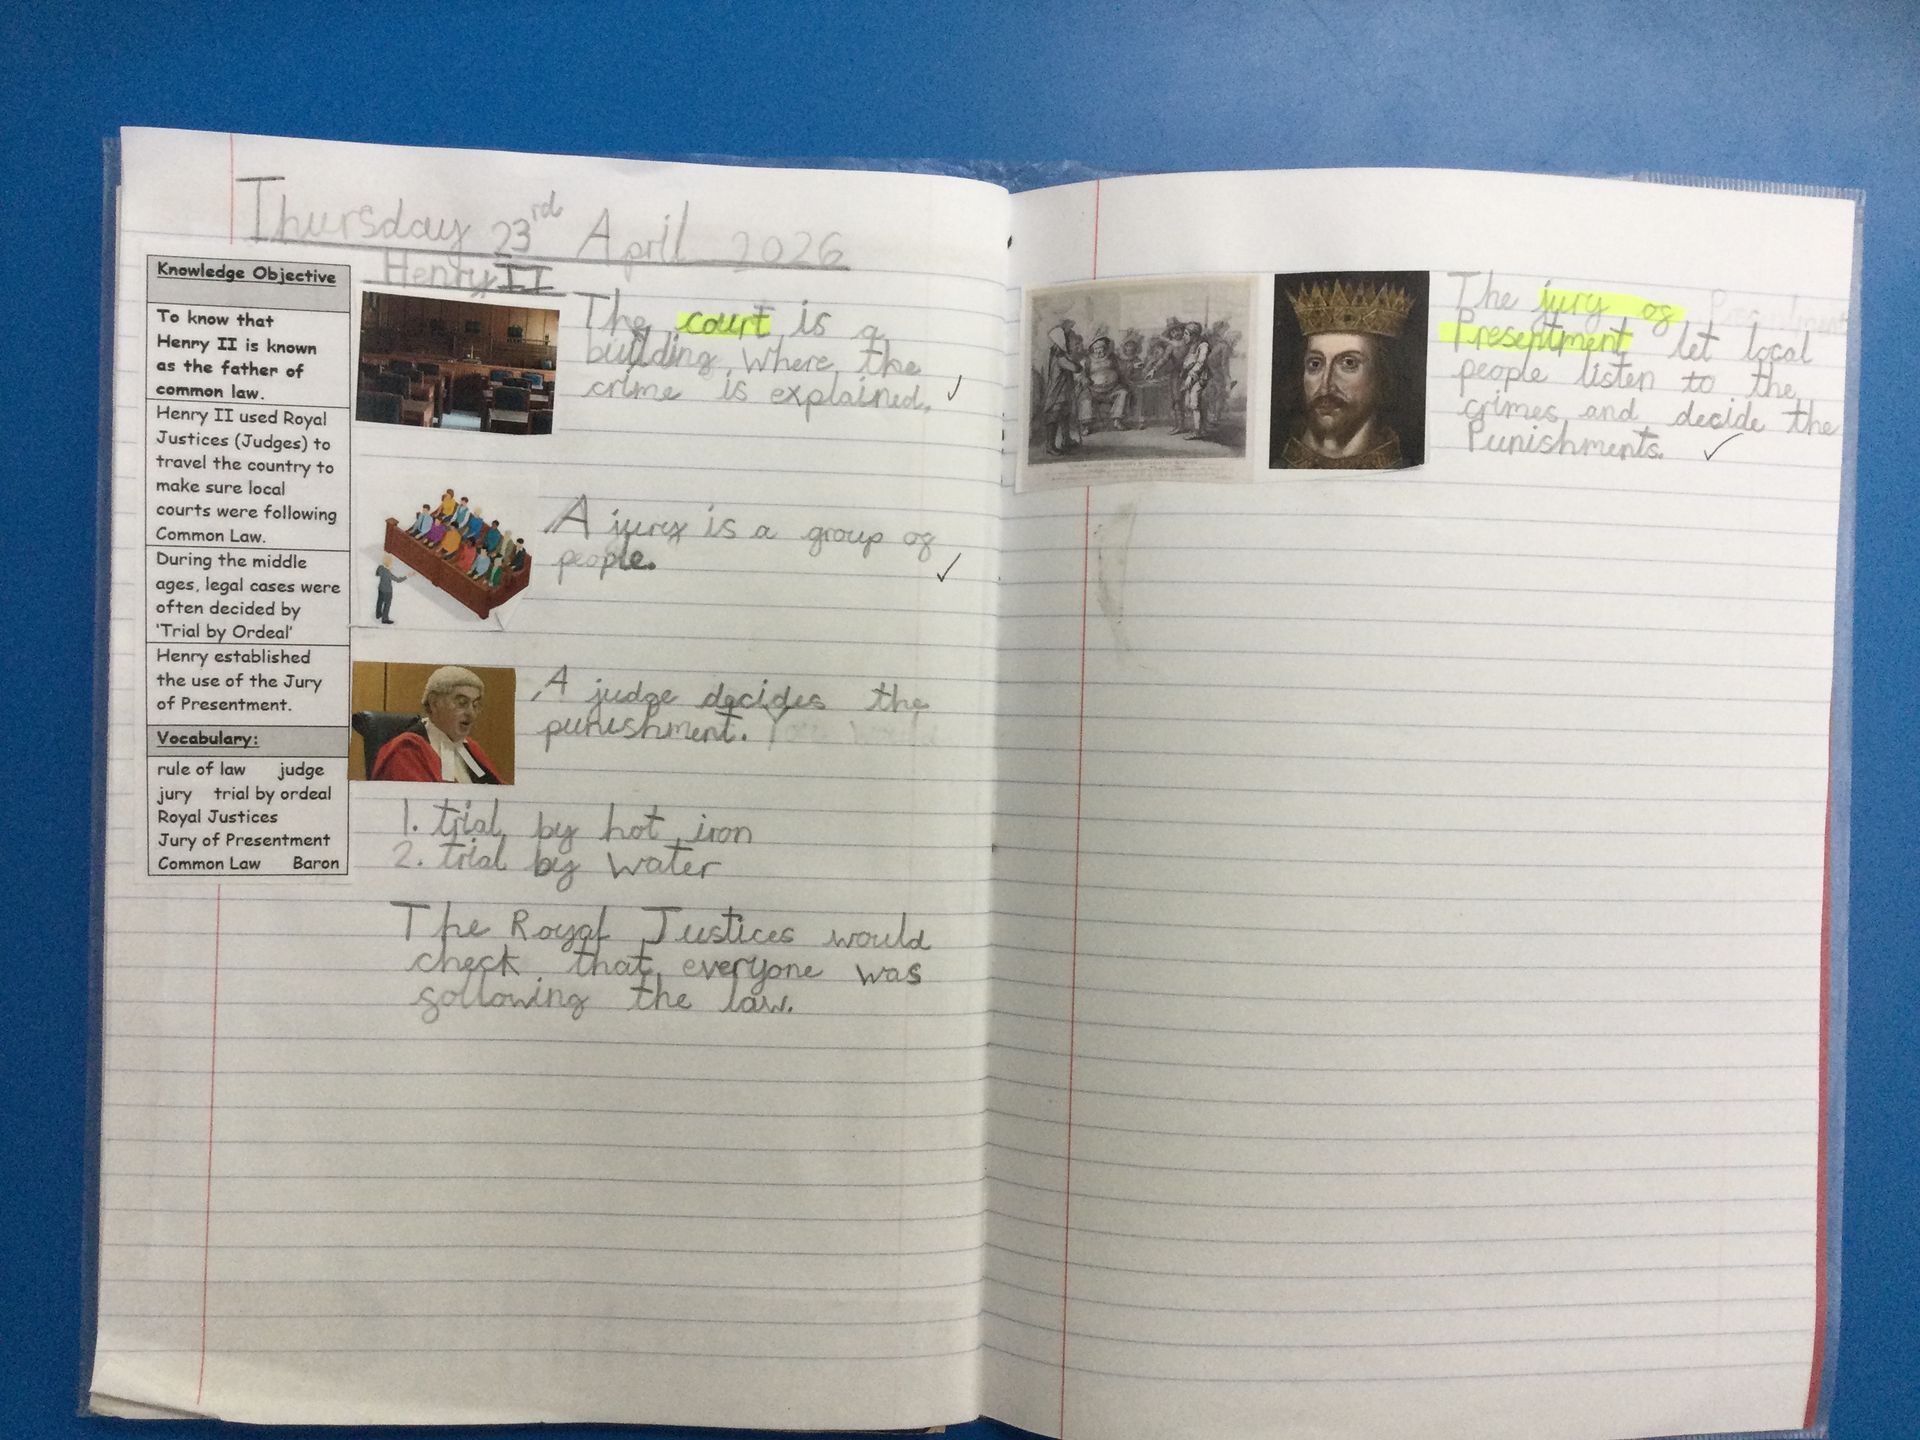 Thursday 23rd April 2026
Henry II
Knowledge Objective
To know that
Henry II is known
as the father of
common law.
Henry II used Royal
Justices (Judges) to
travel the country to
make sure local
courts were following
Common Law.
During the middle
ages, legal cases were
often decided by
'Trial by Ordeal'
Henry established
the use of the Jury
of Presentment.
Vocabulary:
rule of law judge
jury trial by ordeal
Royal Justices
Jury of Presentment
Common Law Baron
The court is a
building where the
crime is explained.
A jury is a group of
people.
A judge decides the
punishment.
1. trial by hot iron
2. trial by water
The Royal Justices would
check that everyone was
following the law.
The jury of
Presentment let local
people listen to the
crimes and decide the
Punishments.